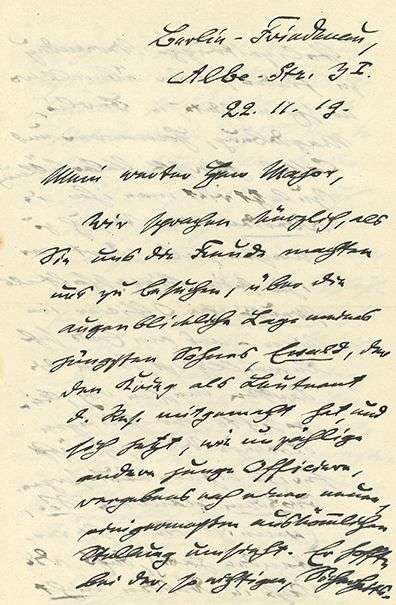 Berlin-Friedenau,
Albe-Str. 3 I.
22. 11. 19.
Mein werter Herr Major,
Wir sprachen kürzlich, als
Sie uns die Freude machten
uns zu besuchen, über die
augenblickliche Lage meines
jüngsten Sohnes Ewald, der
den Krieg als Leutnant
d. Res. mitgemacht hat und
sich jetzt, wie unzählige
andere junge Officiere,
vergebens nach einer neuen,
einigermaßen auskömmlichen
Stellung umsieht. Er hofft
bei der, so wichtigen, Sicherheits-